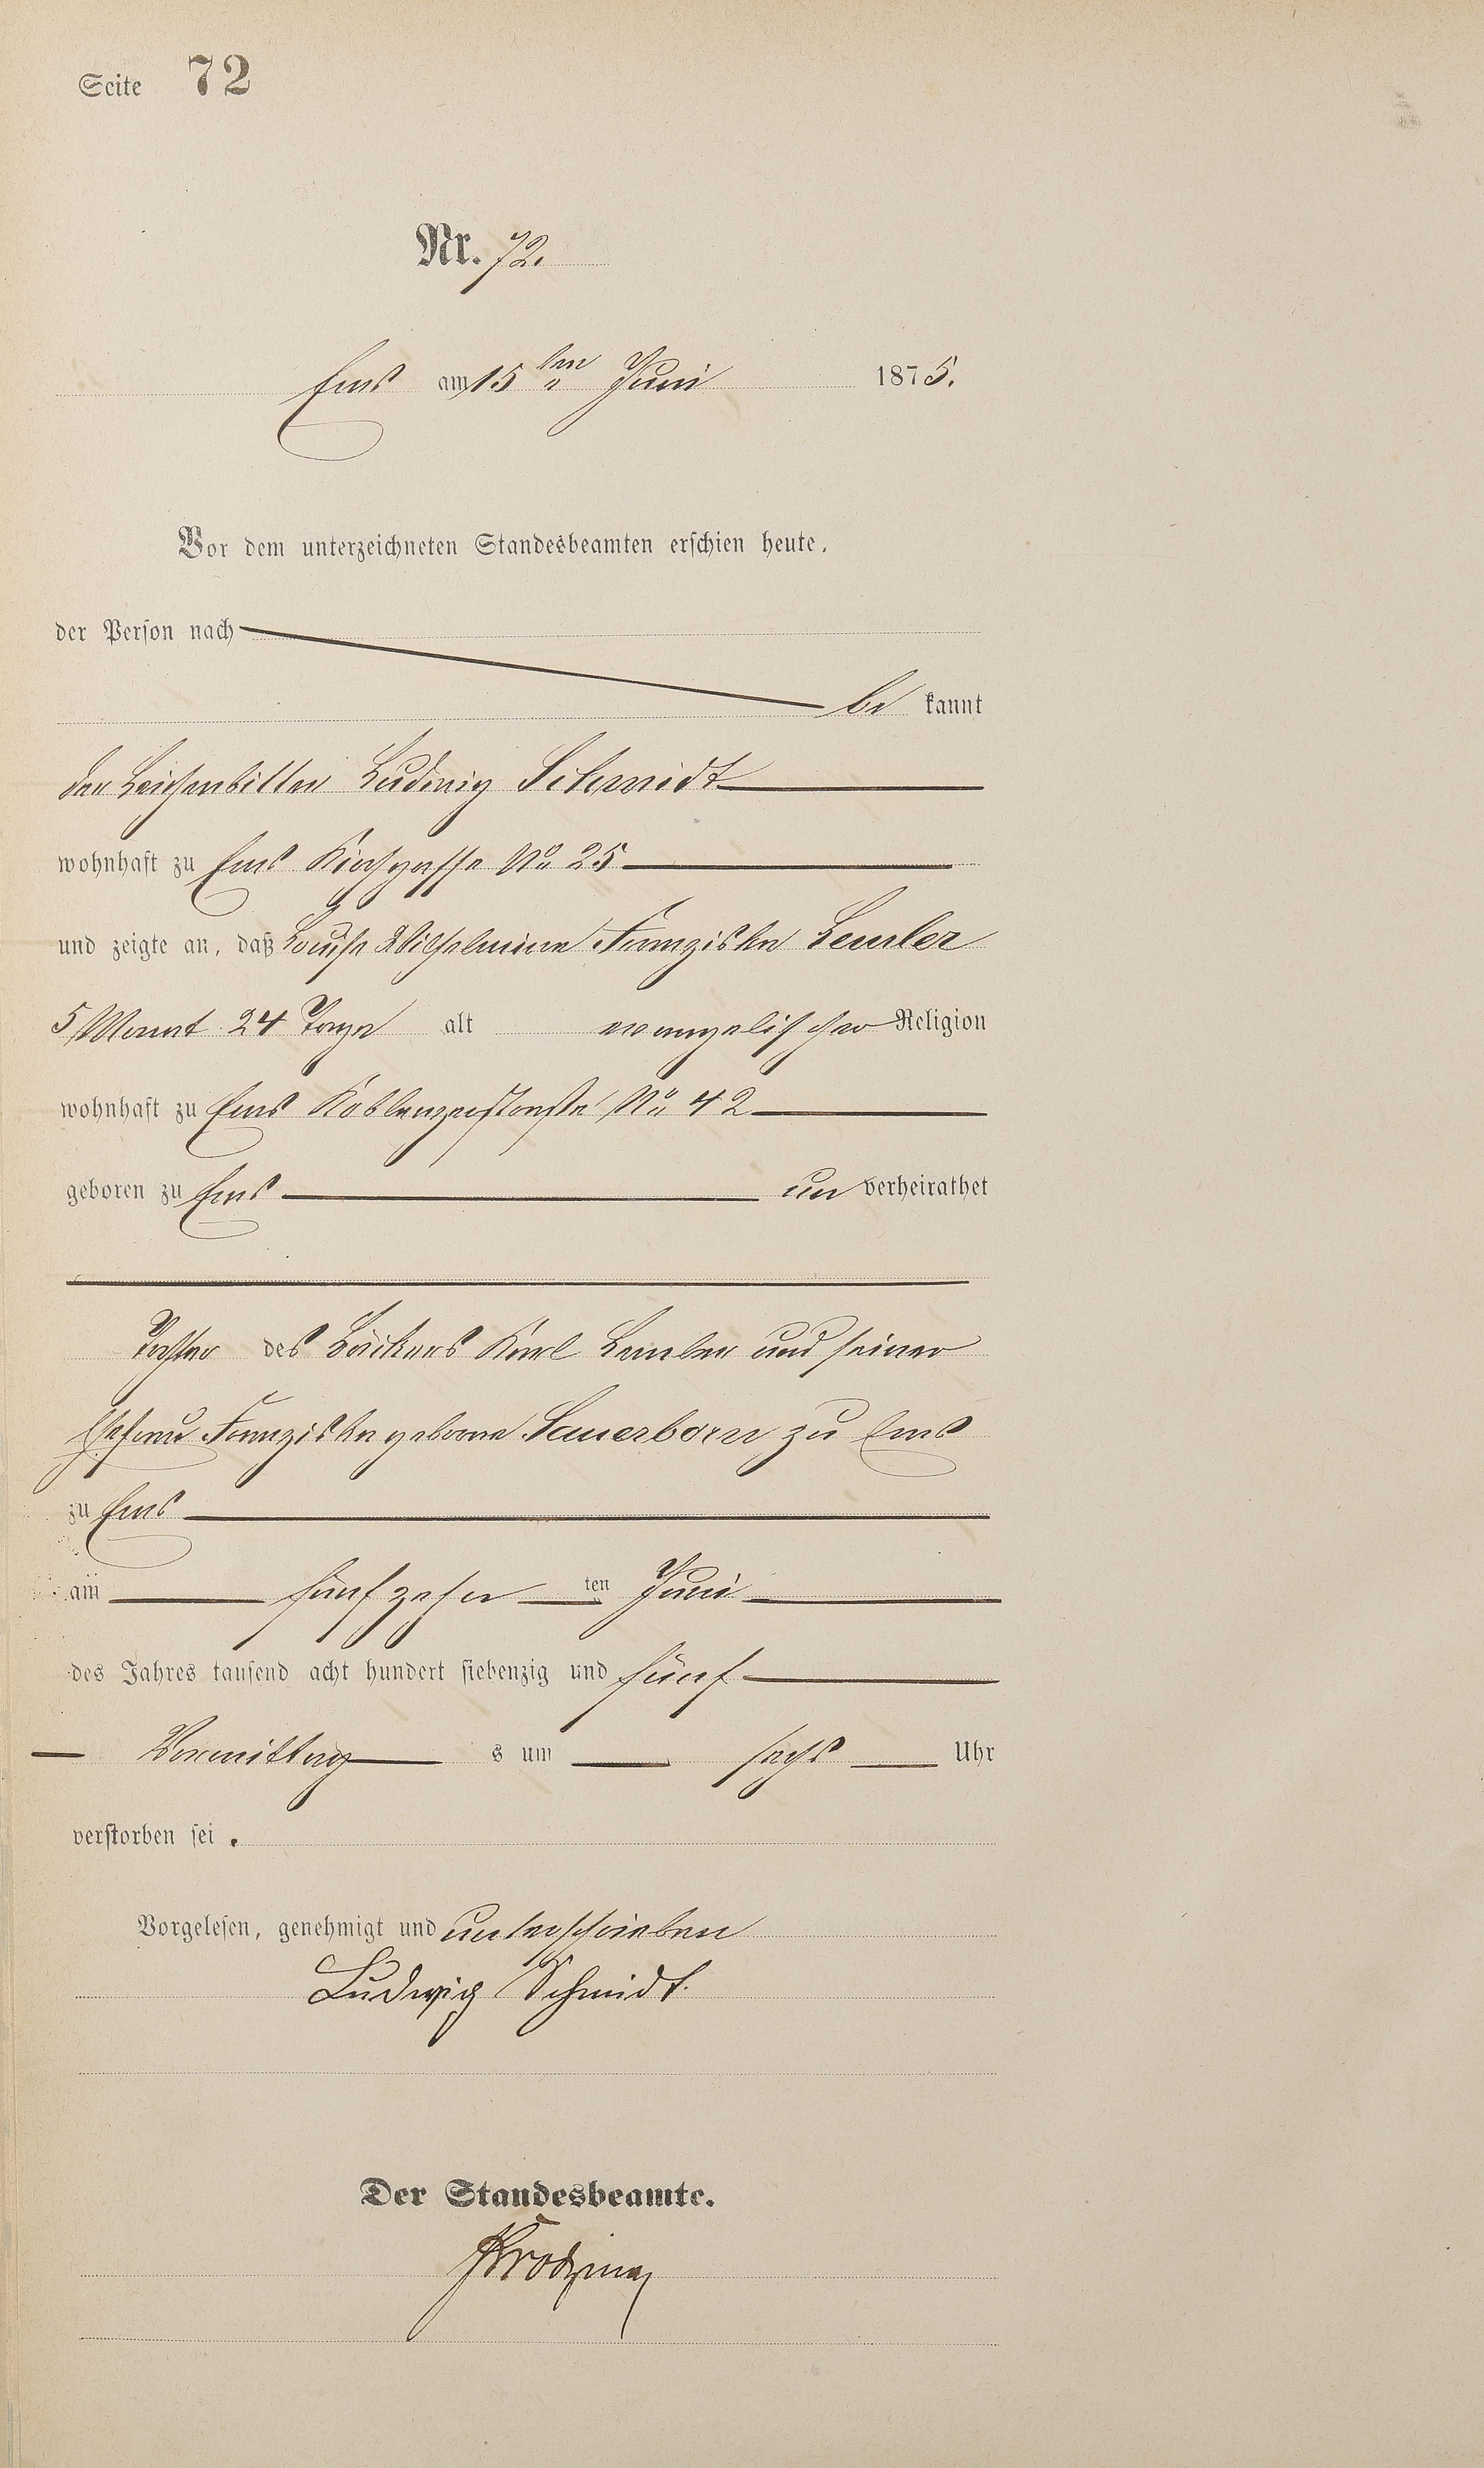 Seite 72
Nr. 72.
Ems am 15ten Juni 1875.
Vor dem unterzeichneten Standesbeamten erschien heute,
der Person nach
be kannt
der Leichenbitter Ludwig Schmidt
wohnhaft zu Ems Kirchgasse No 25
und zeigte an, daß Louise Wilhelmine Franziska Lemler
5 Monat 24 Tage alt evangelischer Religion
wohnhaft zu Ems Koblenzerstraße No 42
geboren zu Ems un verheirathet
Tochter des Bäckers Karl Lemler und seiner
Ehefrau Franziska geborne Sauerborn zu Ems
zu Ems
am fünfzehn ten Juni
des Jahres tausend acht hundert siebenzig und fünf
Vormittag s um sechs Uhr
verstorben sei.
Vorgelesen, genehmigt und unterschrieben
Ludwig Schmidt.
Der Standesbeamte.